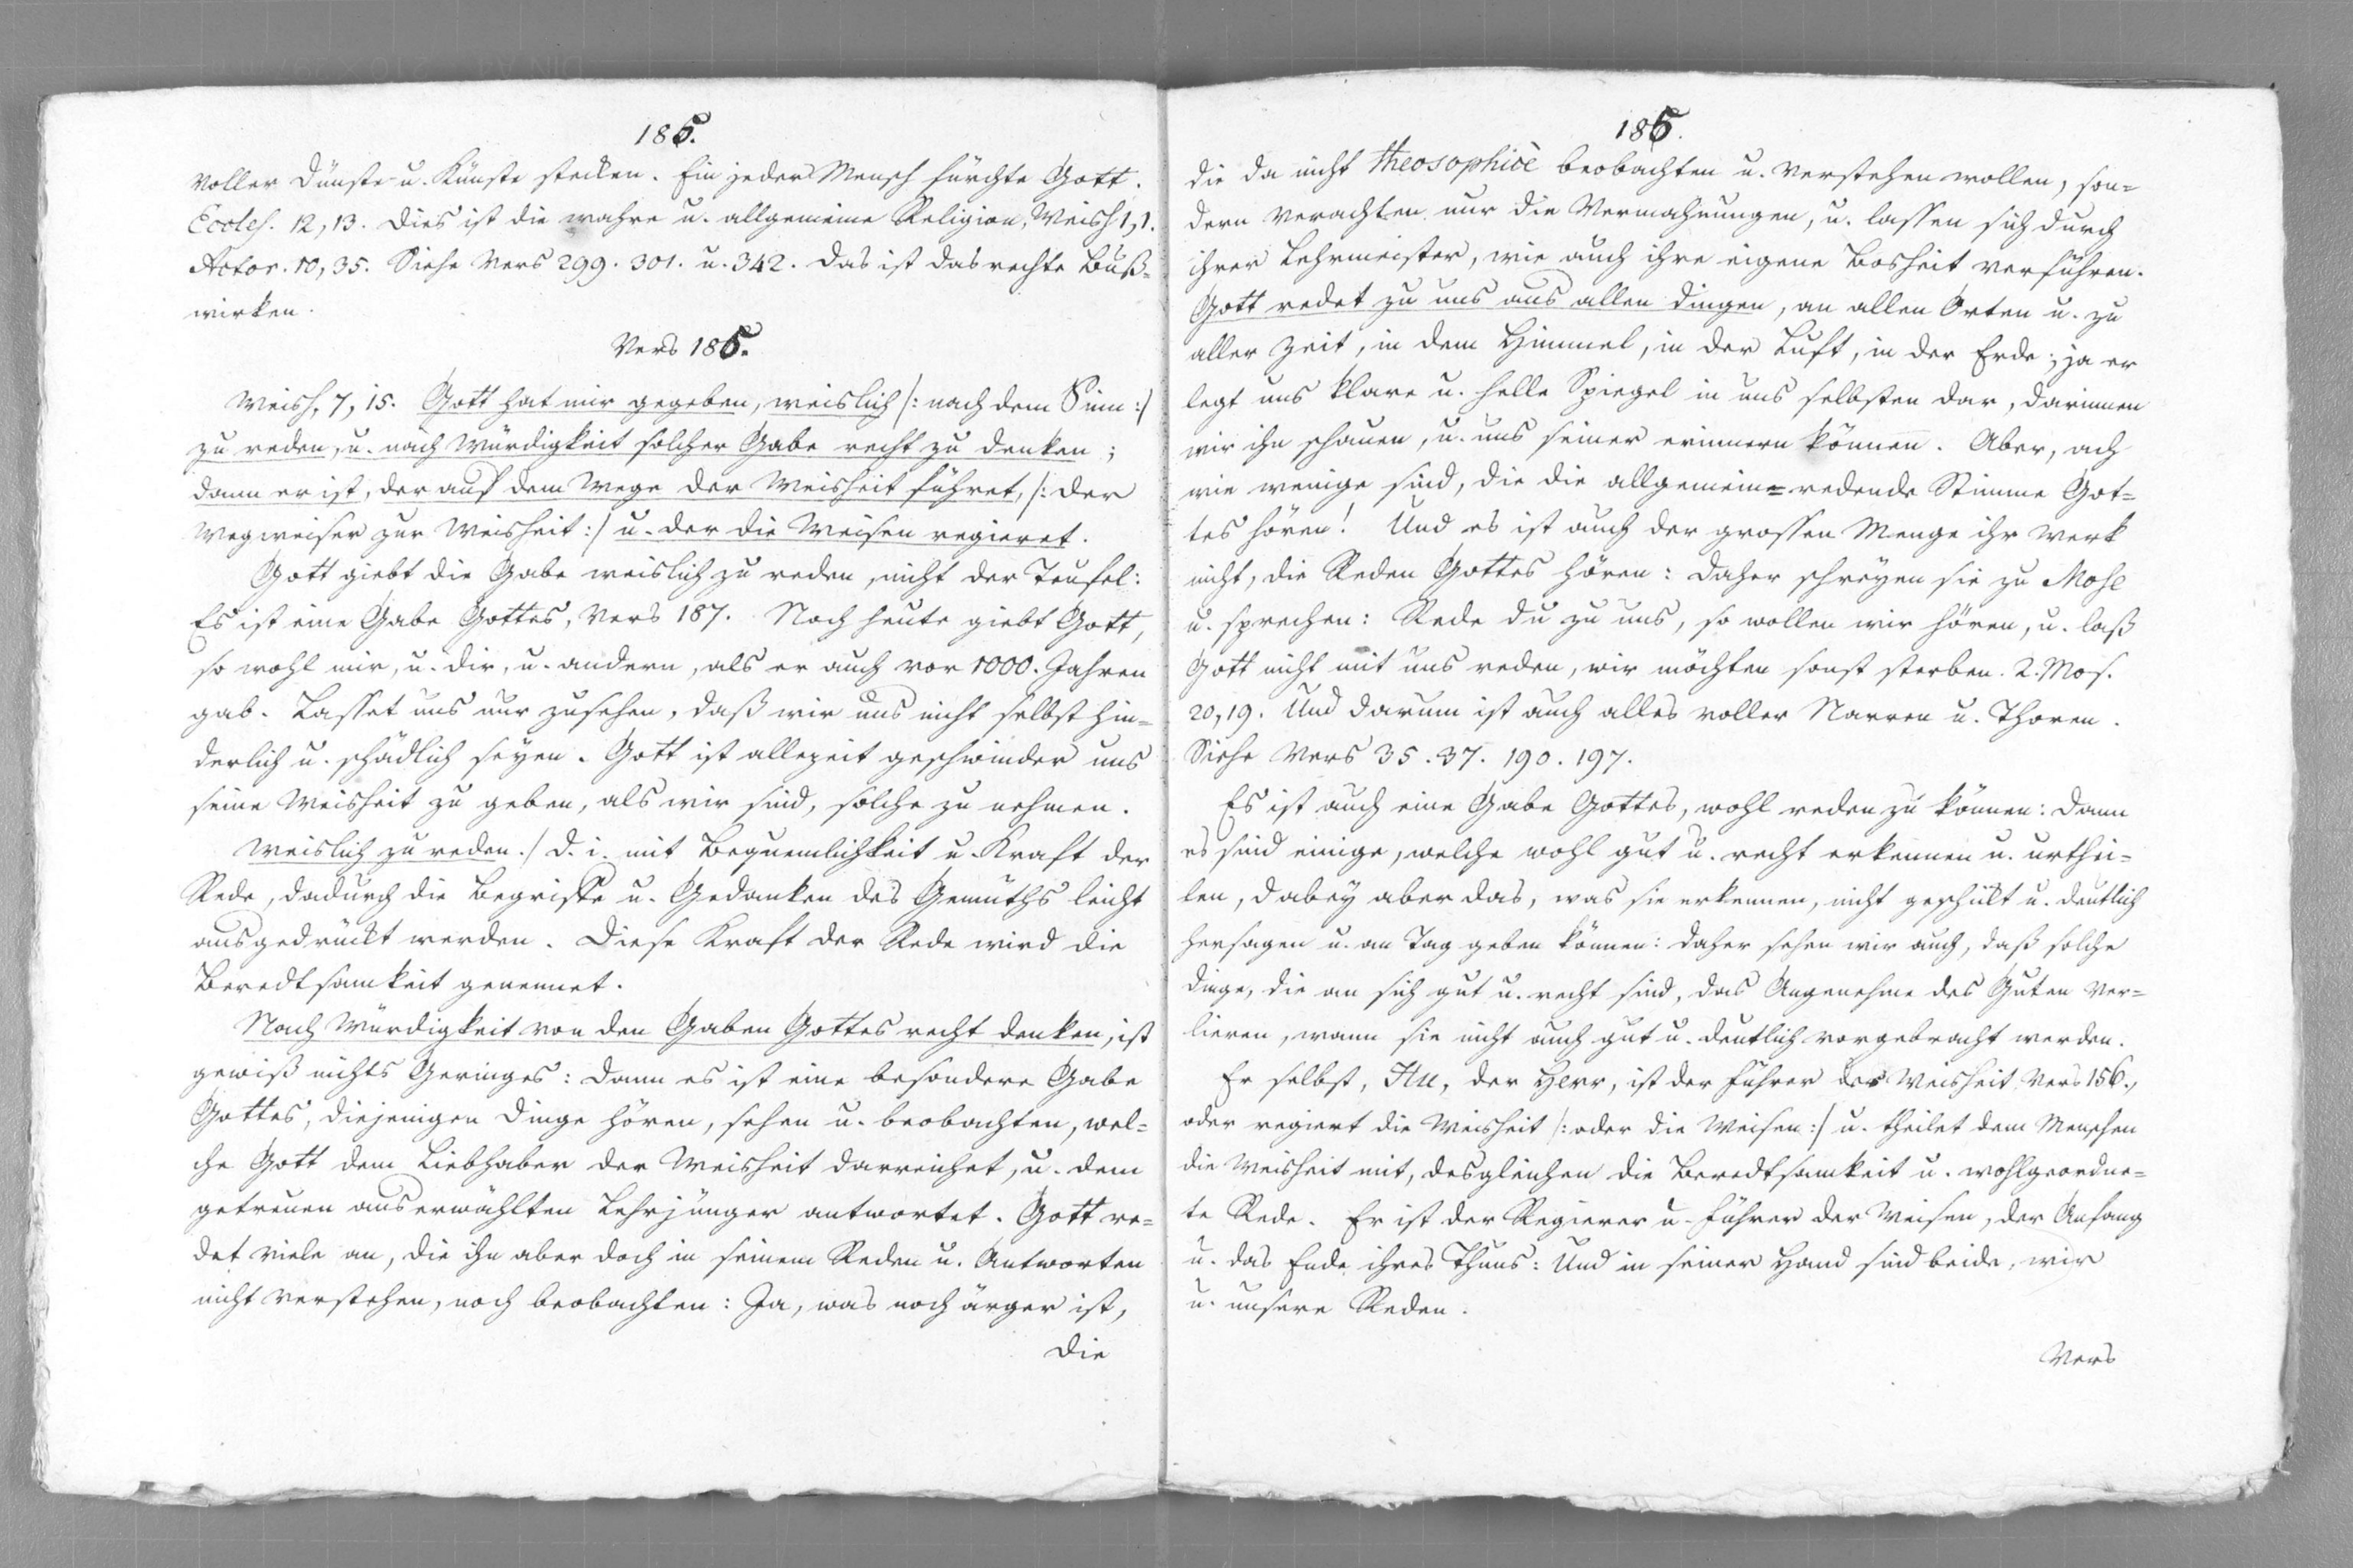 185.
voller Dünste u. Künste stecken. Ein jeder Mensch fürchte Gott.
Eccles. 12, 13. Dies ist die wahre u. allgemeine Religion, Weish 1, 1.
Actor. 10, 35. Siehe Vers 299. 301. u. 342. Das ist das rechte Buß-
wirken.
Vers 185.
Weish. 7, 15. Gott hat mir gegeben, weislich /: nach dem Sinn :/
zu reden, u. nach Würdigkeit solcher Gabe recht zu denken;
dann er ist, der auf dem Wege der Weisheit führet, /: der
Wegweiser zur Weisheit :/ u. der die Weisen regieret.
Gott giebt die Gabe weislich zu reden, nicht der Teufel:
Es ist eine Gabe Gottes, Vers 187. Noch heute giebt Gott,
so wohl mir, u. dir, u. andern, als er auch vor 1000. Jahren
gab. Lasset uns nur zusehen, daß wir uns nicht selbst hin-
derlich u. schädlich seyen. Gott ist allezeit geschwinder uns
seine Weisheit zu geben, als wir sind, solche zu nehmen.
Weislich zu reden./ d. i. mit Bequemlichkeit u. Kraft der
Rede, dadurch die Begriffe u. Gedanken des Gemüths leicht
ausgedrückt werden. Diese Kraft der Rede wird die
Beredtsamkeit genennet.
Nach Würdigkeit von den Gaben Gottes recht denken, ist
gewiß nichts Geringes: Dann es ist eine besondere Gabe
Gottes, diejenigen Dinge hören, sehen u. beobachten, wel-
che Gott dem Liebhaber der Weisheit darreichet, u. dem
getreuen auserwählten Lehrjünger antwortet. Gott re-
det viele an, die ihn aber doch in seinem Reden u. Antworten
nicht verstehen, noch beobachten: Ja, was noch ärger ist,
die
186.
die da nicht theosophicè beobachten u. verstehen wollen, son-
dern verachten nur die Vermahnungen, u. lassen sich durch
ihrer Lehrmeister, wie auch ihre eigene Bosheit verführen.
Gott redet zu uns aus allen Dingen, an allen Orten u. zu
aller Zeit, in dem Himmel, in der Luft, in der Erde; ja er
legt uns klare u. helle Spiegel in uns selbsten dar, darinnen
wir ihn schauen, u. uns seiner erinnern können. Aber, ach
wie wenige sind, die die allgemein-redende Stimme Got-
tes hören! Und es ist auch der grossen Menge ihr Werk
nicht, die Reden Gottes hören: Daher schreyen sie zu Mose
u. sprechen: Rede du zu uns, so wollen wir hören, u. laß
Gott nicht mit uns reden, wir möchten sonst sterben. 2. Mos.
20, 19. Und darum ist auch alles voller Narren u. Thoren.
Siehe Vers 35. 37. 190. 197.
Es ist auch eine Gabe Gottes, wohl reden zu können: Dann
es sind einige, welche wohl gut u. recht erkennen u. urthei-
len, dabey aber das, was sie erkennen, nicht geschickt u. deutlich
hersagen u. an Tag geben können: Daher sehen wir auch, daß solche
Dinge, die an sich gut u. recht sind, das Angenehme des Guten ver-
lieren, wann sie nicht auch gut u. deutlich vorgebracht werden.
Er selbst, der Herr, ist der Führer der Weisheit Vers 156.,
oder regiert die Weisheit /: oder die Weisen :/ u. theilet dem Menschen
die Weisheit mit, desgleichen die Beredtsamkeit u. wohlgeordne-
te Rede. Er ist der Regierer u. Führer der Weisen, der Anfang
u. das Ende ihres Thuns: Und in seiner Hand sind beide, wir
u. unsere Reden.
Vers